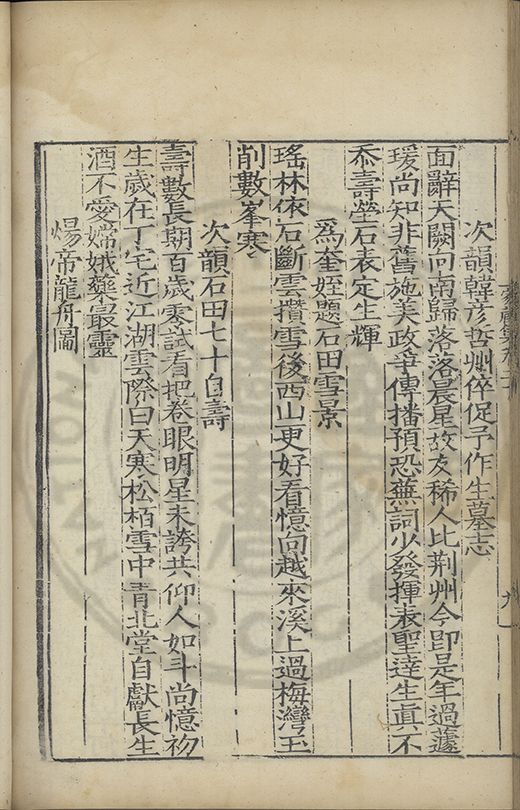 次韻韓彦哲州倅促予作生墓志
面辭天闕向南歸落落晨星故友稀人比荆州今即是年過蘧
瑗尚知非舊施美政爭傳播預恐蕪詞少發揮表聖達生眞不
忝壽塋石表定生輝
爲奎姪題石田雪景
瑤林依石斷雲攅雪後西山更好看憶向越來溪上過梅灣玉
削數峯寒
次韻石田七十自壽
壽數長期百歲零試看把卷眼明星未誇共仰人如斗尚憶初
生歲在丁宅近江湖雲際白天寒松栢雪中青北堂自獻長生
酒不愛嫦娥藥最靈
煬帝龍舟圖